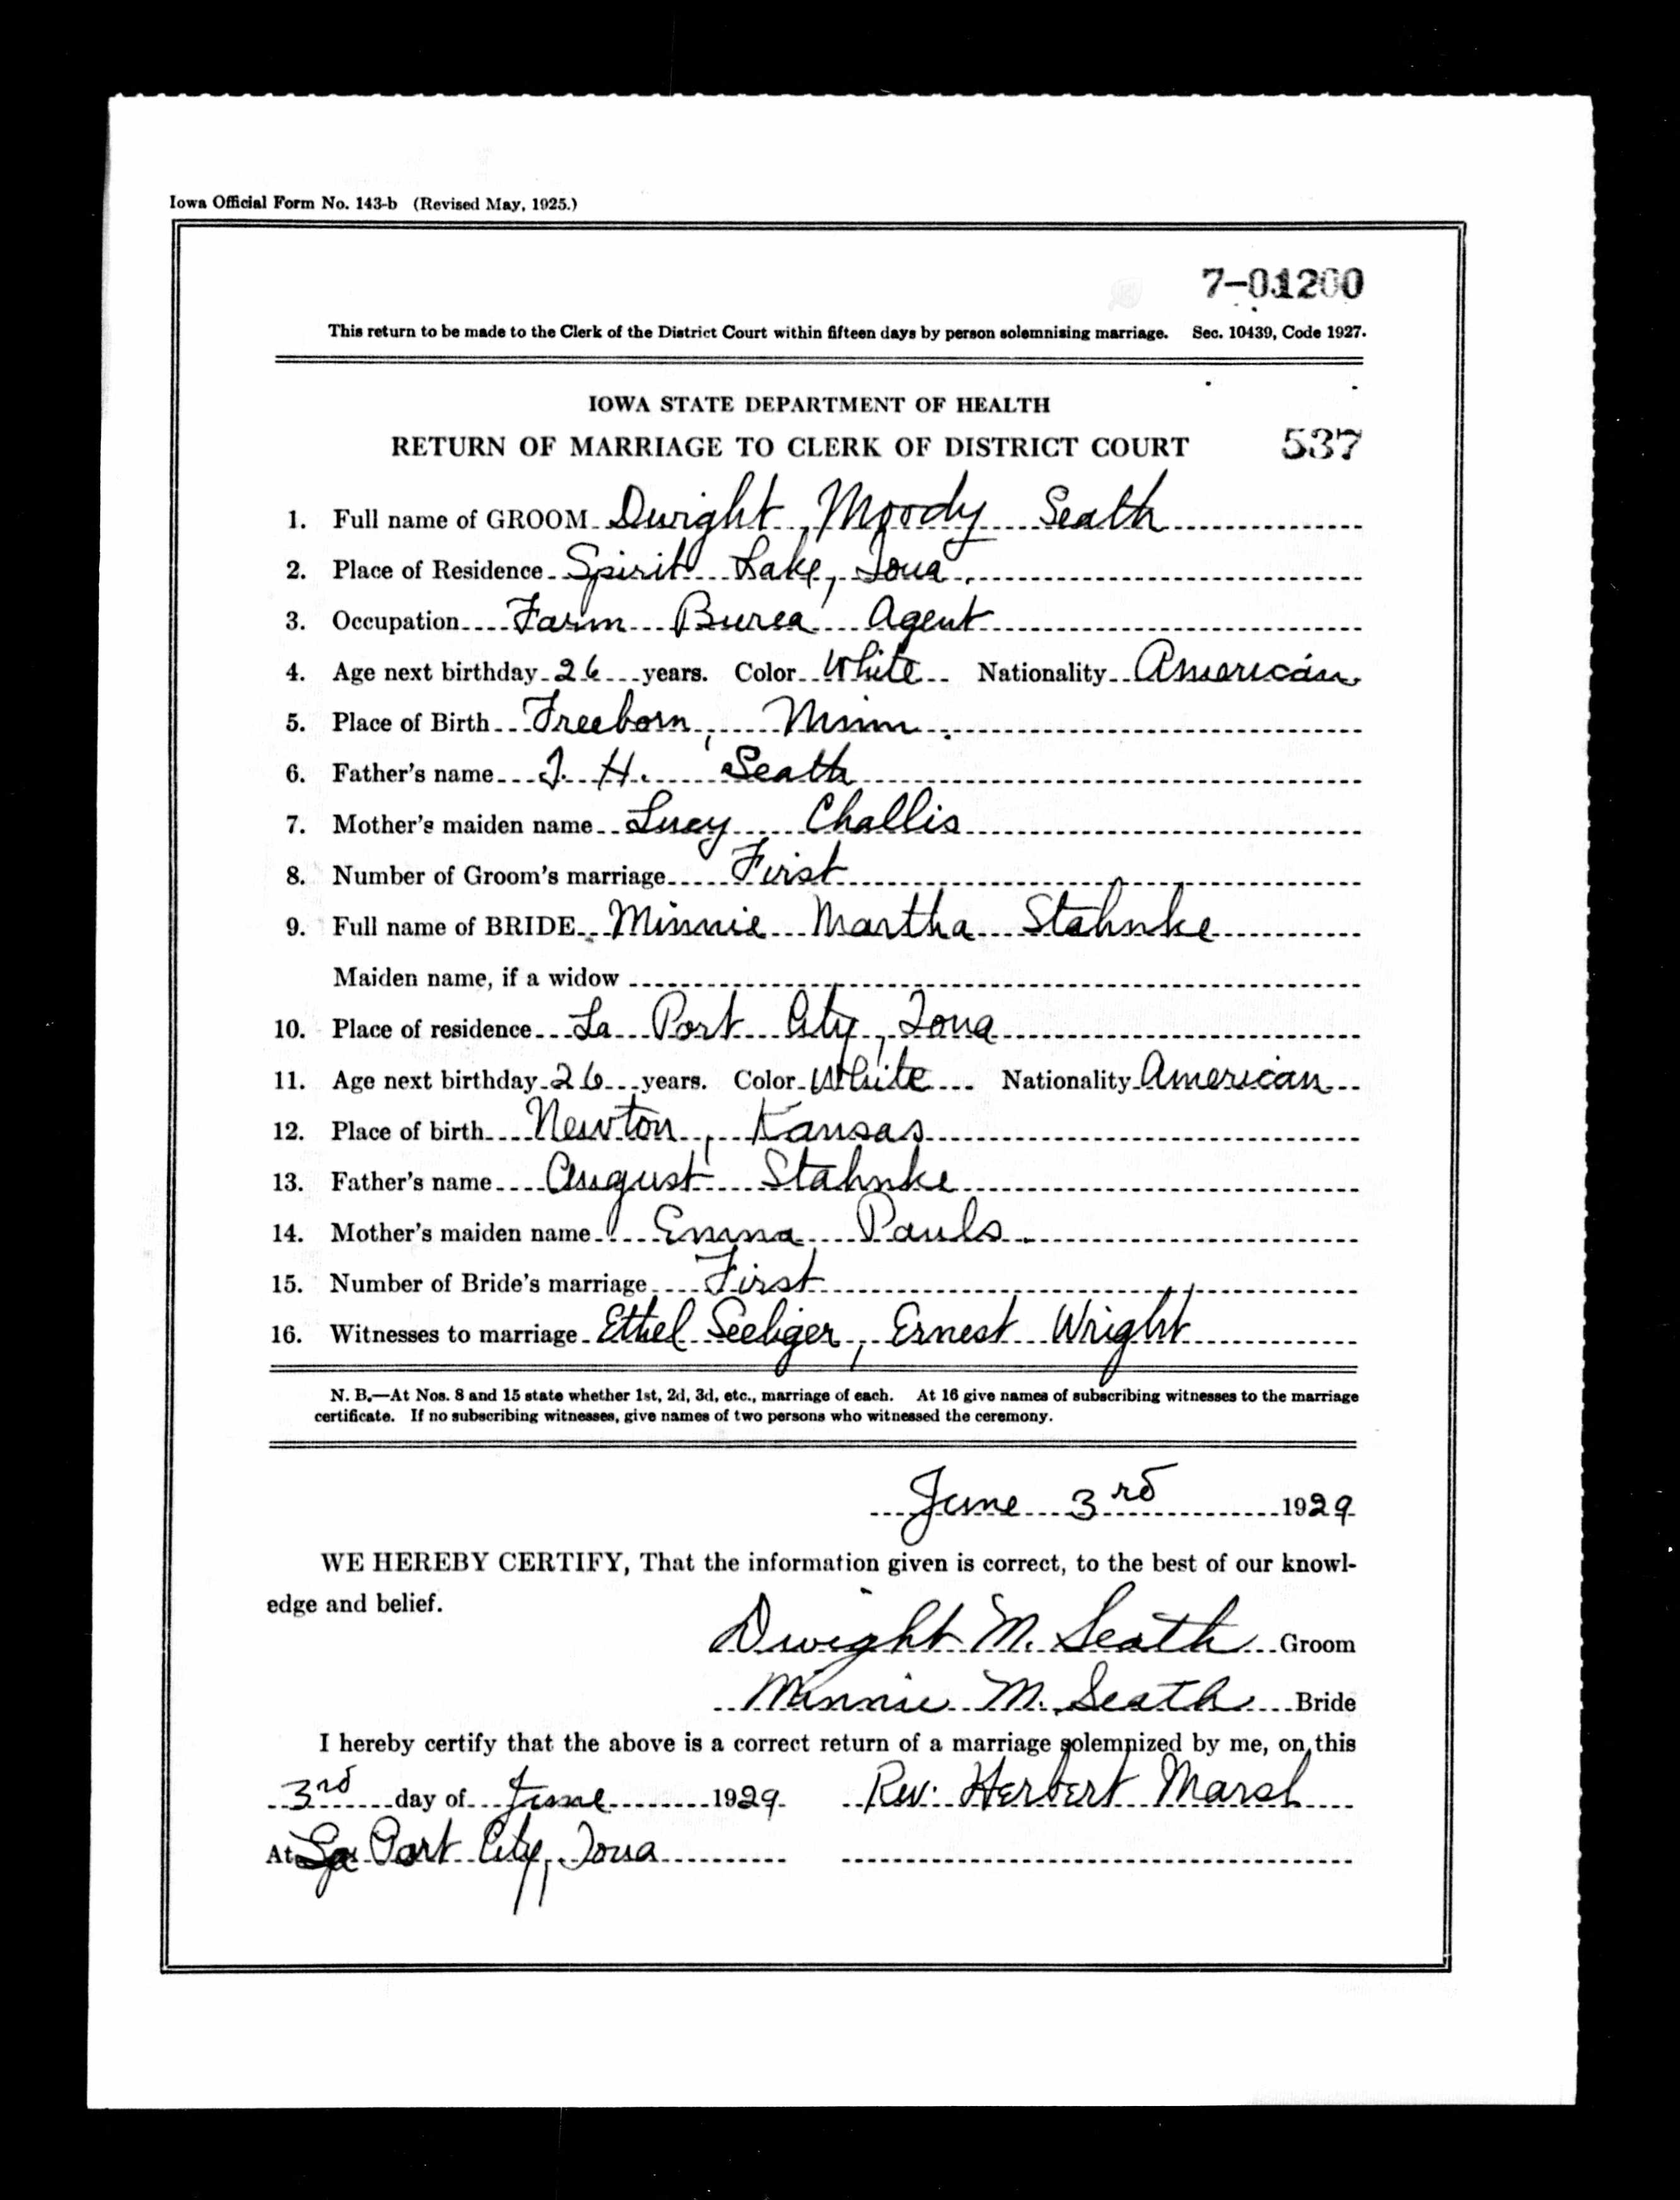 Iowa Official Form No. 143-b (Revised May, 1925.)
7-01200
This return to be made to the Clerk of the District Court within fifteen days by person solemnising marriage. Sec. 10439, Code 1927.
IOWA STATE DEPARTMENT OF HEALTH
RETURN OF MARRIAGE TO CLERK OF DISTRICT COURT 537
1. Full name of GROOM Dwight Moody Seath
2. Place of Residence Spirit Lake, Iowa.
3. Occupation Farm Burea Agent
4. Age next birthday 26 years. Color White Nationality American
5. Place of Birth Freeborn, Minn.
6. Father's name J. H. Seath
7. Mother's maiden name Lucy Challis
8. Number of Groom's marriage First
9. Full name of BRIDE Minnie Martha Stahnke
Maiden name, if a widow
10. Place of residence La Port City, Iowa
11. Age next birthday 26 years. Color White Nationality American
12. Place of birth Newton, Kansas
13. Father's name August Stahnke
14. Mother's maiden name Emma Pauls.
15. Number of Bride's marriage First
16. Witnesses to marriage Ethel Seeliger, Ernest Wright
N. B.—At Nos. 8 and 15 state whether 1st, 2d, 3d, etc., marriage of each. At 16 give names of subscribing witnesses to the marriage
certificate. If no subscribing witnesses, give names of two persons who witnessed the ceremony.
June 3rd 1929
WE HEREBY CERTIFY, That the information given is correct, to the best of our knowl-
edge and belief.
Dwight M. Seath Groom
Minnie M. Seath Bride
I hereby certify that the above is a correct return of a marriage solemnized by me, on this
3rd day of June 1929 Rev. Herbert Marsh
At La Port City, Iowa